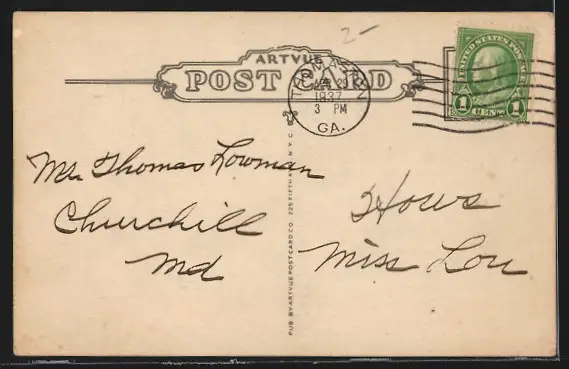 2-
ARTVUE
POST CARD
THOMASTON
MAR 29
1937
3 PM
GA.
UNITED STATES POSTAGE
1 CENT 1
Mr. Thomas Lowman
Churchill
Md
Hows
Miss Lou
PUB BY ARTVUE POST CARD CO. 225 FIFTH AVE. N.Y.C.